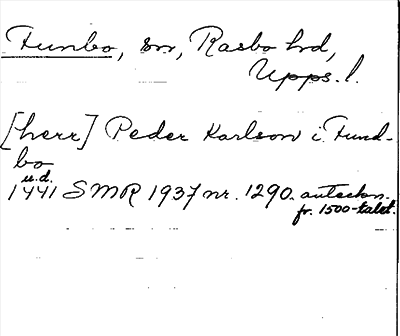 Funbo, sn, Rasbo hd,
Upps. l.
[herr] Peder Karlson i Fund-
bo
u.d.
1441 SMR 1937 nr. 1290. anteckn.
fr. 1500-talet.